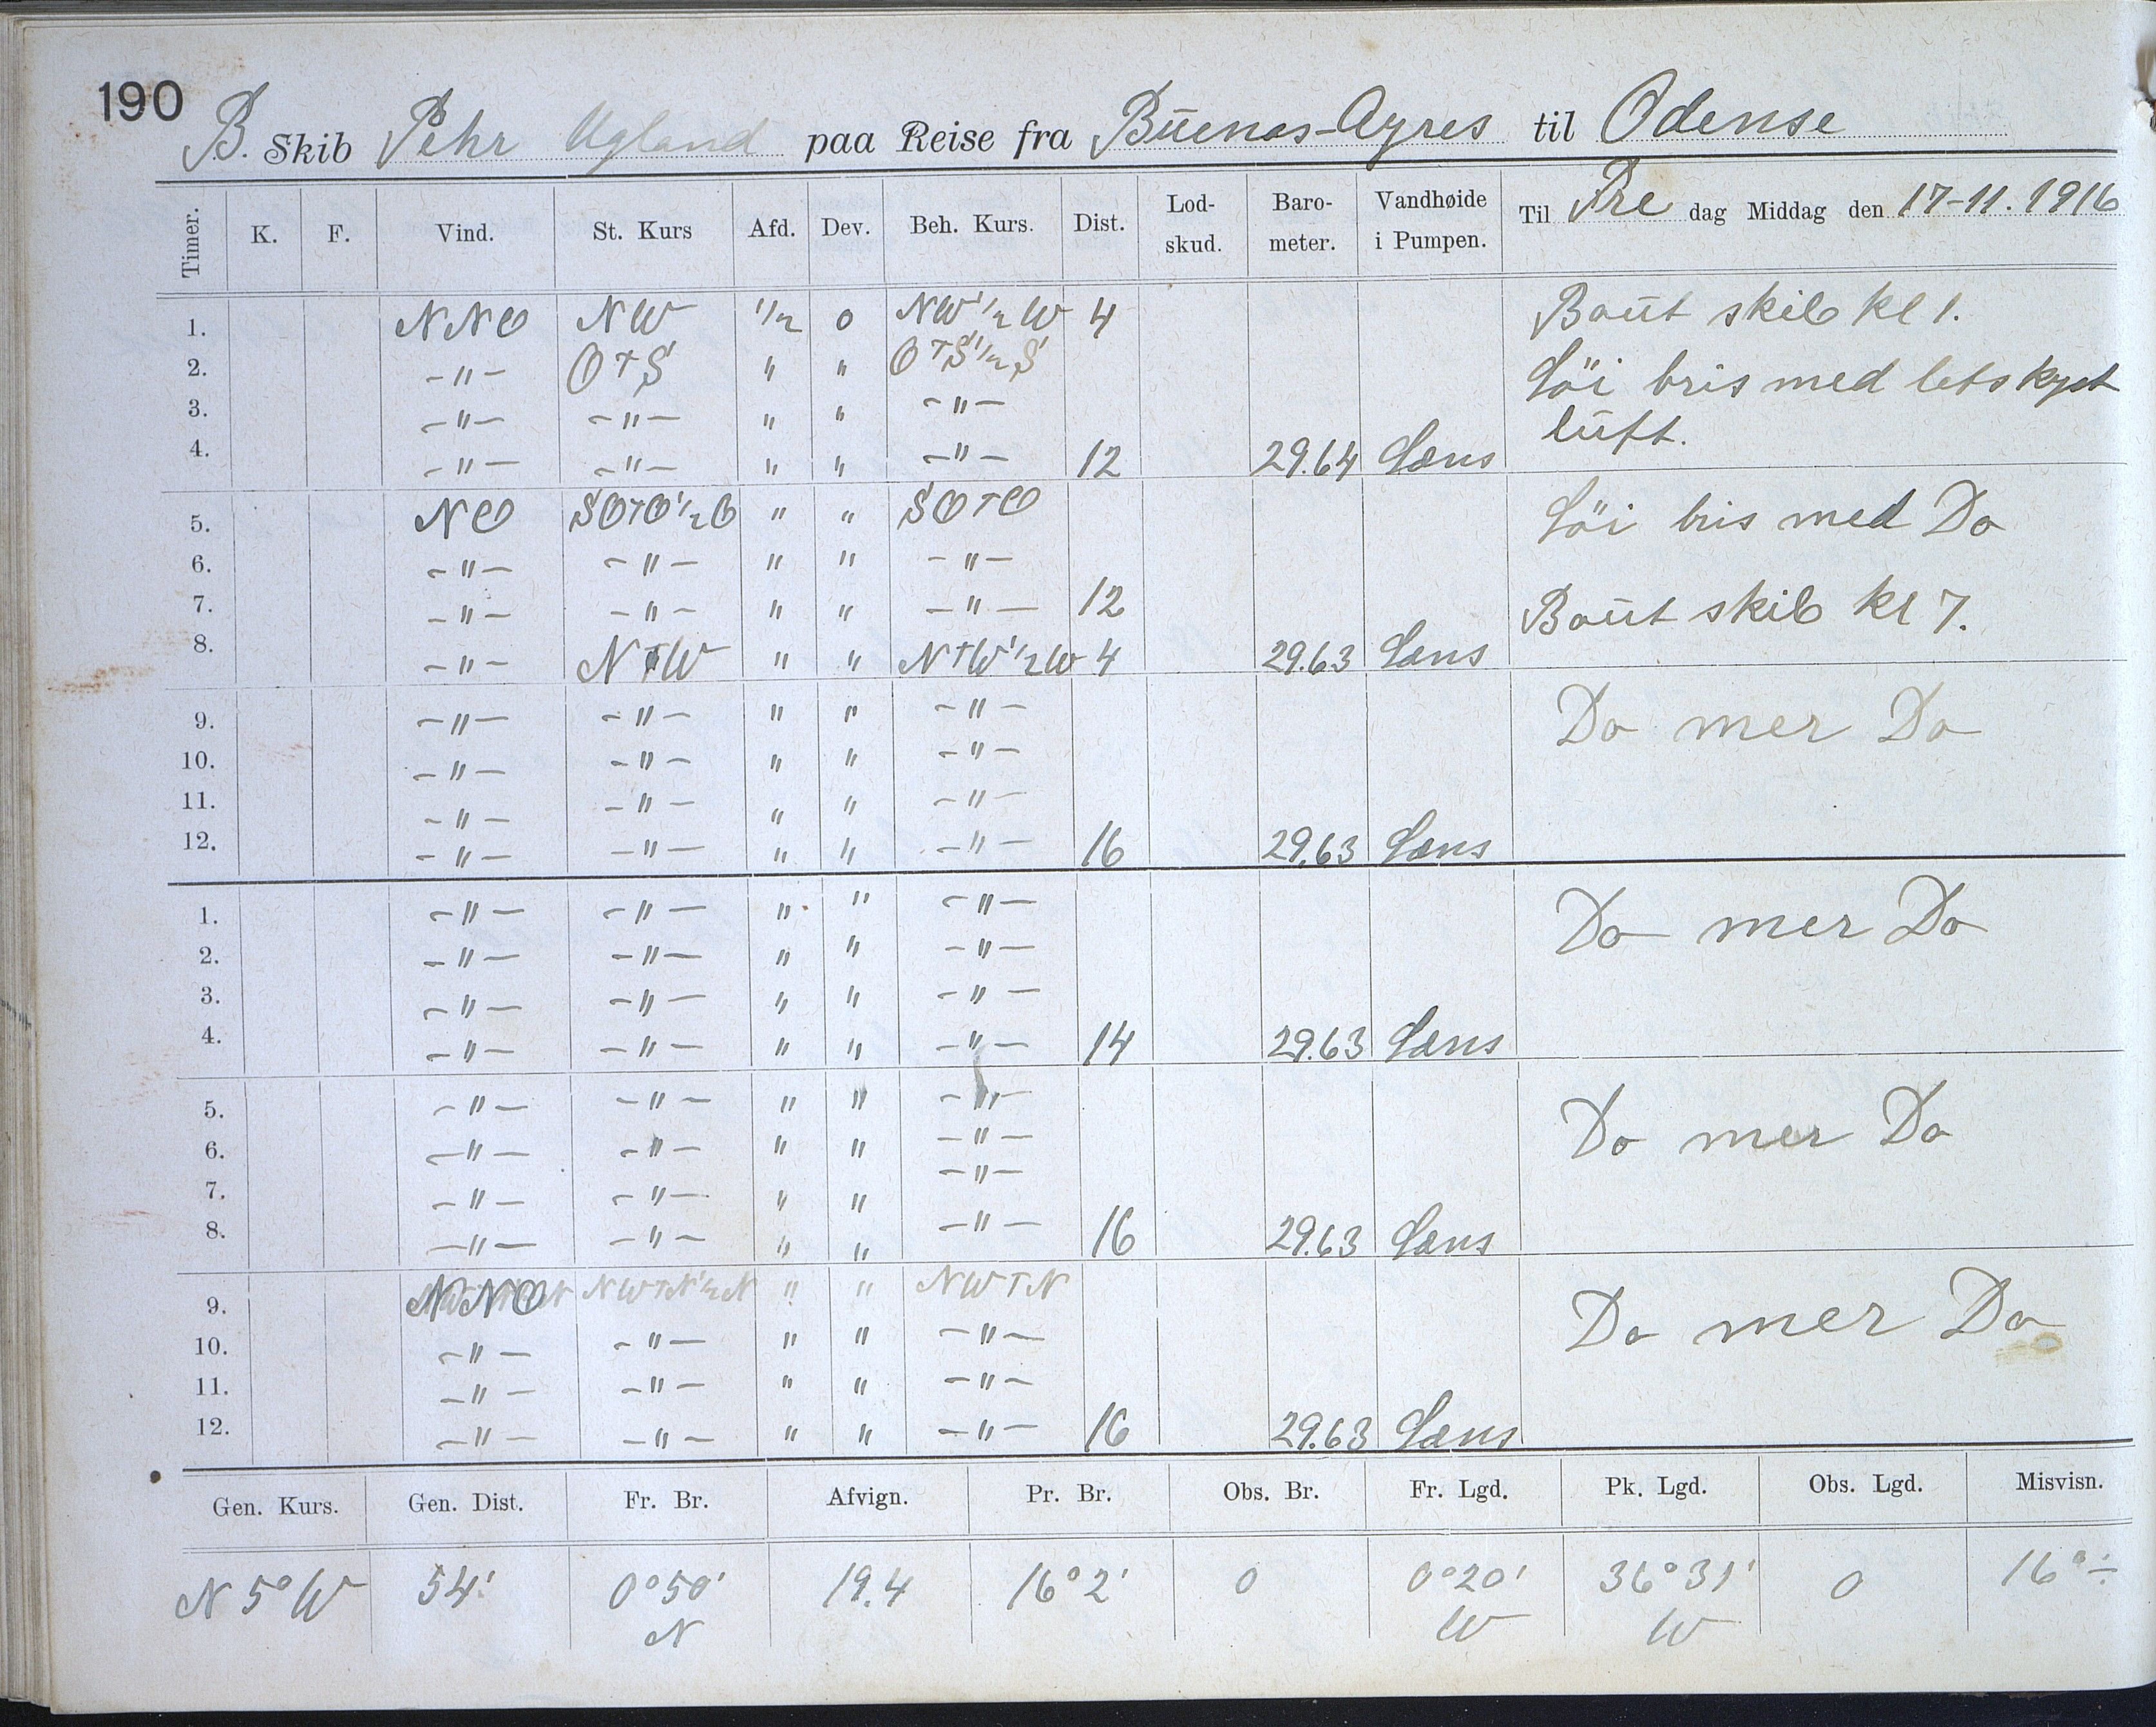 190
B. Skib Pehr Ugland paa Reise fra Buenos-Ayres til Odense
Timer. K. F. Vind. St. Kurs Afd. Dev. Beh. Kurs. Dist. Lod-skud. Baro-meter. Vandhøide i Pumpen. Til Fre dag Middag den 17-11.1916
1. NNO NW 1/2 0 NW1/2W 4 Baut skib kl 1.
2. -"- OTS " " OTS1/2S Löi bris med letskyet
3. -"- -"- " " -"- luft.
4. -"- -"- " " -"- 12 29.64 Læns
5. NO SOTO1/2O " " SOTO Löi bris med Do
6. -"- -"- " " -"-
7. -"- -"- " " -"- 12 Baut skib kl 7.
8. -"- NTW " " NTW1/2W 4 29.63 Læns
9. -"- -"- " " -"- Do mer Do
10. -"- -"- " " -"-
11. -"- -"- " " -"-
12. -"- -"- " " -"- 16 29.63 Læns
1. -"- -"- " " -"- Do mer Do
2. -"- -"- " " -"-
3. -"- -"- " " -"-
4. -"- -"- " " -"- 14 29.63 Læns
5. -"- -"- " " -"- Do mer Do
6. -"- -"- " " -"-
7. -"- -"- " " -"-
8. -"- -"- " " -"- 16 29.63 Læns
9. NNO NWTN1/2N " " NWTN Do mer Do
10. -"- -"- " " -"-
11. -"- -"- " " -"-
12. -"- -"- " " -"- 16 29.63 Læns
Gen. Kurs. Gen. Dist. Fr. Br. Afvign. Pr. Br. Obs. Br. Fr. Lgd. Pk. Lgd. Obs. Lgd. Misvisn.
N 5° W 54' 0°50' 19.4 16°2' 0 0°20' 36°31' 0 16°÷
N W W